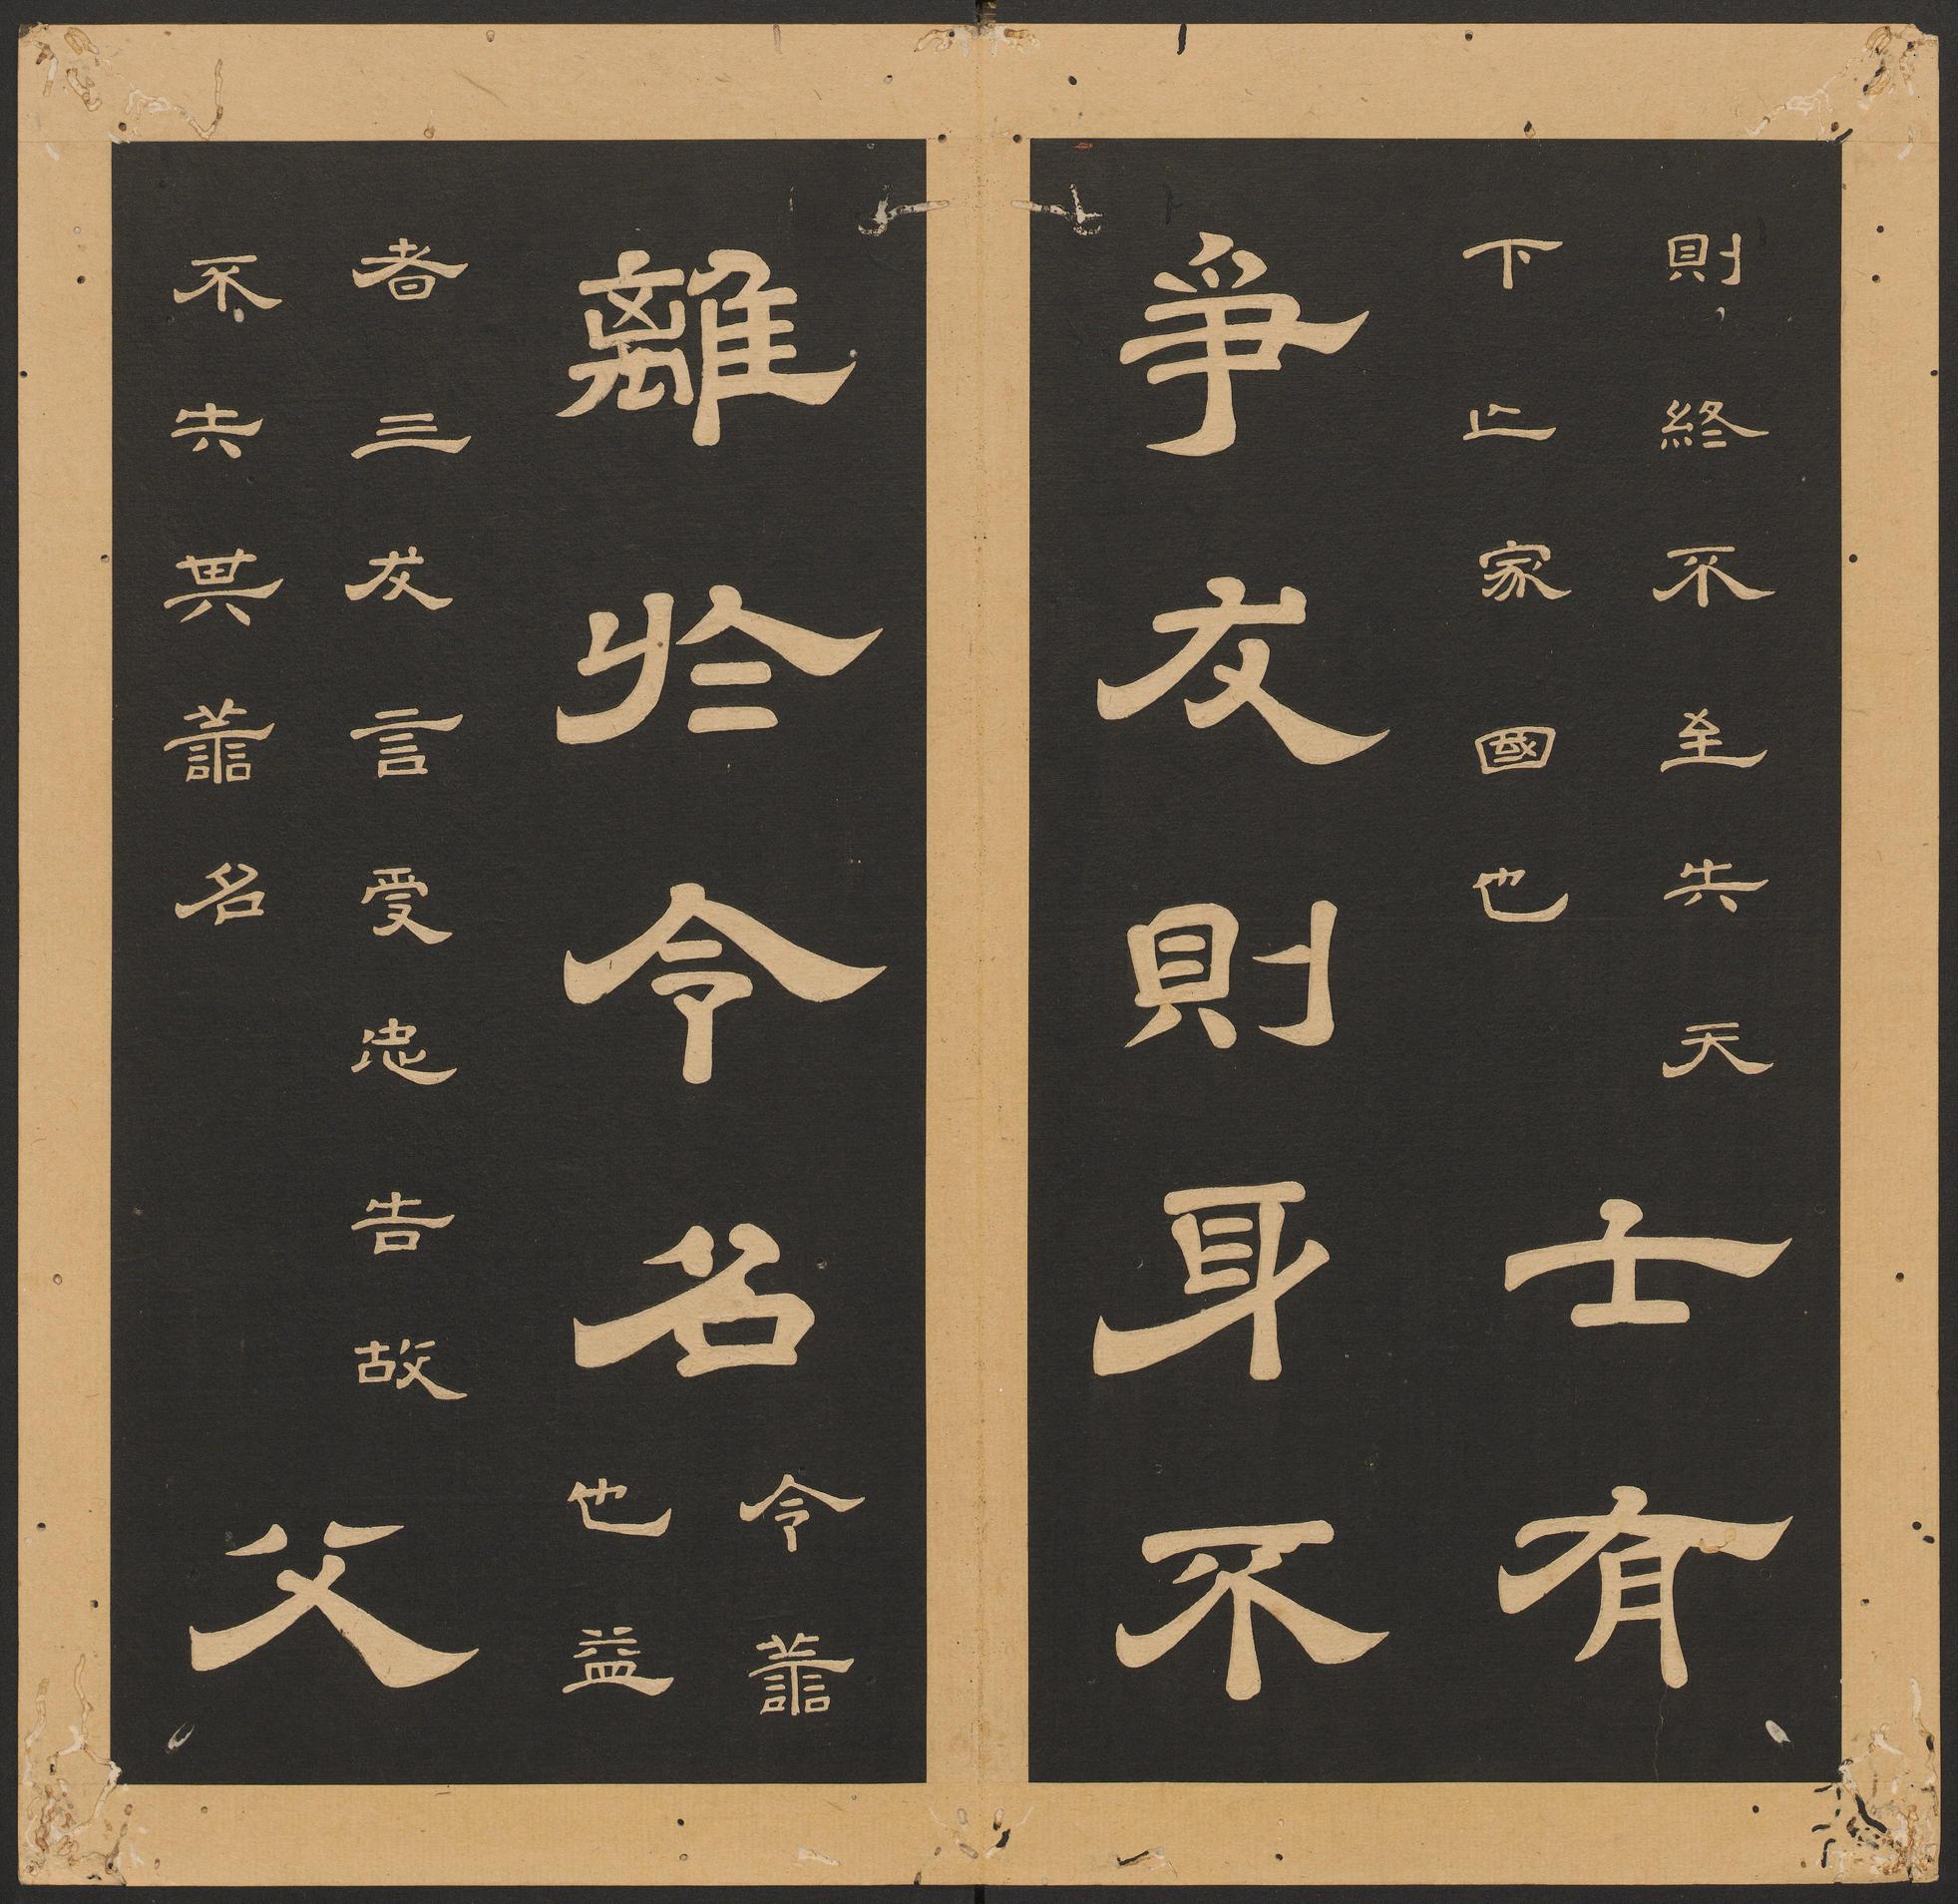 則終不至失天
下亡家國也
士有
爭友則身不
離於令名
令譱
也益
者三友言受忠告故
不失其譱名
父